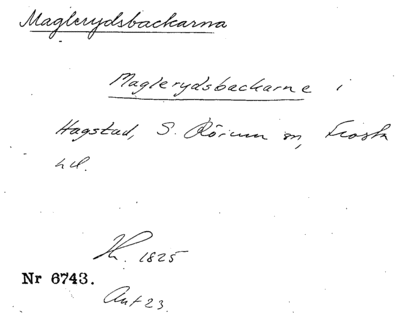 Maglerydsbackarna
Maglerydsbackarne i
Hagstad, S. Rörum sn, Frosta
hd.
1825
Nr 6743.
Ant 23.